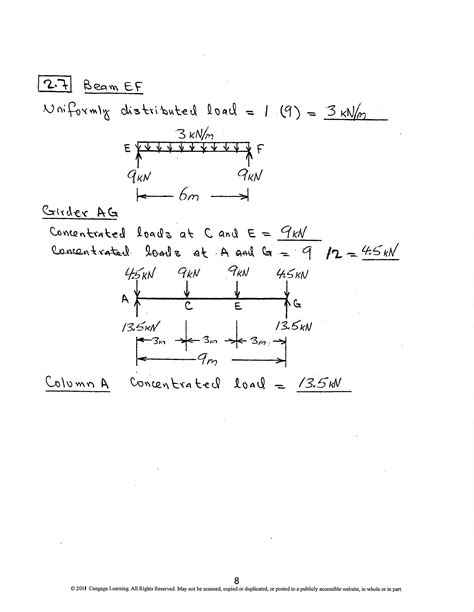 2.7 Beam EF
Uniformly distributed load = 1 (9) = 3 kN/m
3 kN/m
E F
9kN 9kN
6m
Girder AG
Concentrated loads at C and E = 9kN
Concentrated loads at A and G = 9 /2 = 4.5kN
4.5kN 9kN 9kN 4.5kN
A C E G
13.5kN 13.5kN
3m 3m 3m
9m
Column A Concentrated load = 13.5kN
8
© 2011 Cengage Learning. All Rights Reserved. May not be scanned, copied or duplicated, or posted to a publicly accessible website, in whole or in part.